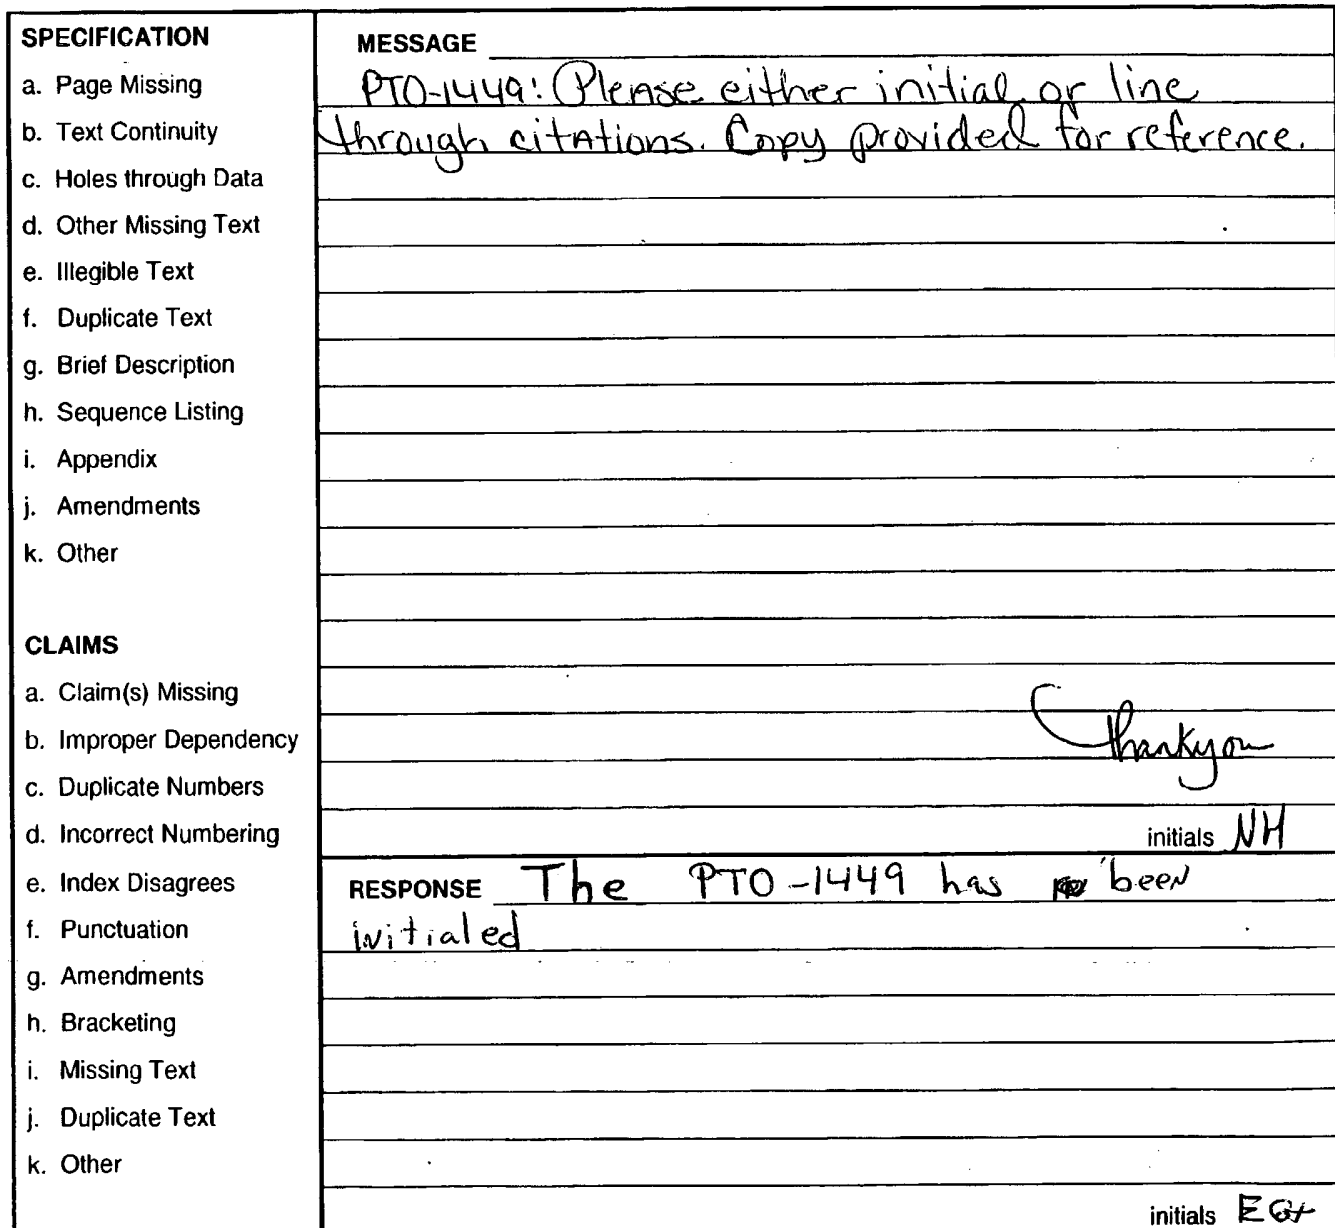 SPECIFICATION
a. Page Missing
b. Text Continuity
c. Holes through Data
d. Other Missing Text
e. Illegible Text
f. Duplicate Text
g. Brief Description
h. Sequence Listing
i. Appendix
j. Amendments
k. Other
CLAIMS
a. Claim(s) Missing
b. Improper Dependency
c. Duplicate Numbers
d. Incorrect Numbering
e. Index Disagrees
f. Punctuation
g. Amendments
h. Bracketing
i. Missing Text
j. Duplicate Text
k. Other
MESSAGE
PTO-1449: Please either initial or line
through citations. Copy provided for reference.
Thank you
initials NH
RESPONSE The PTO-1449 has been
initialed
initials